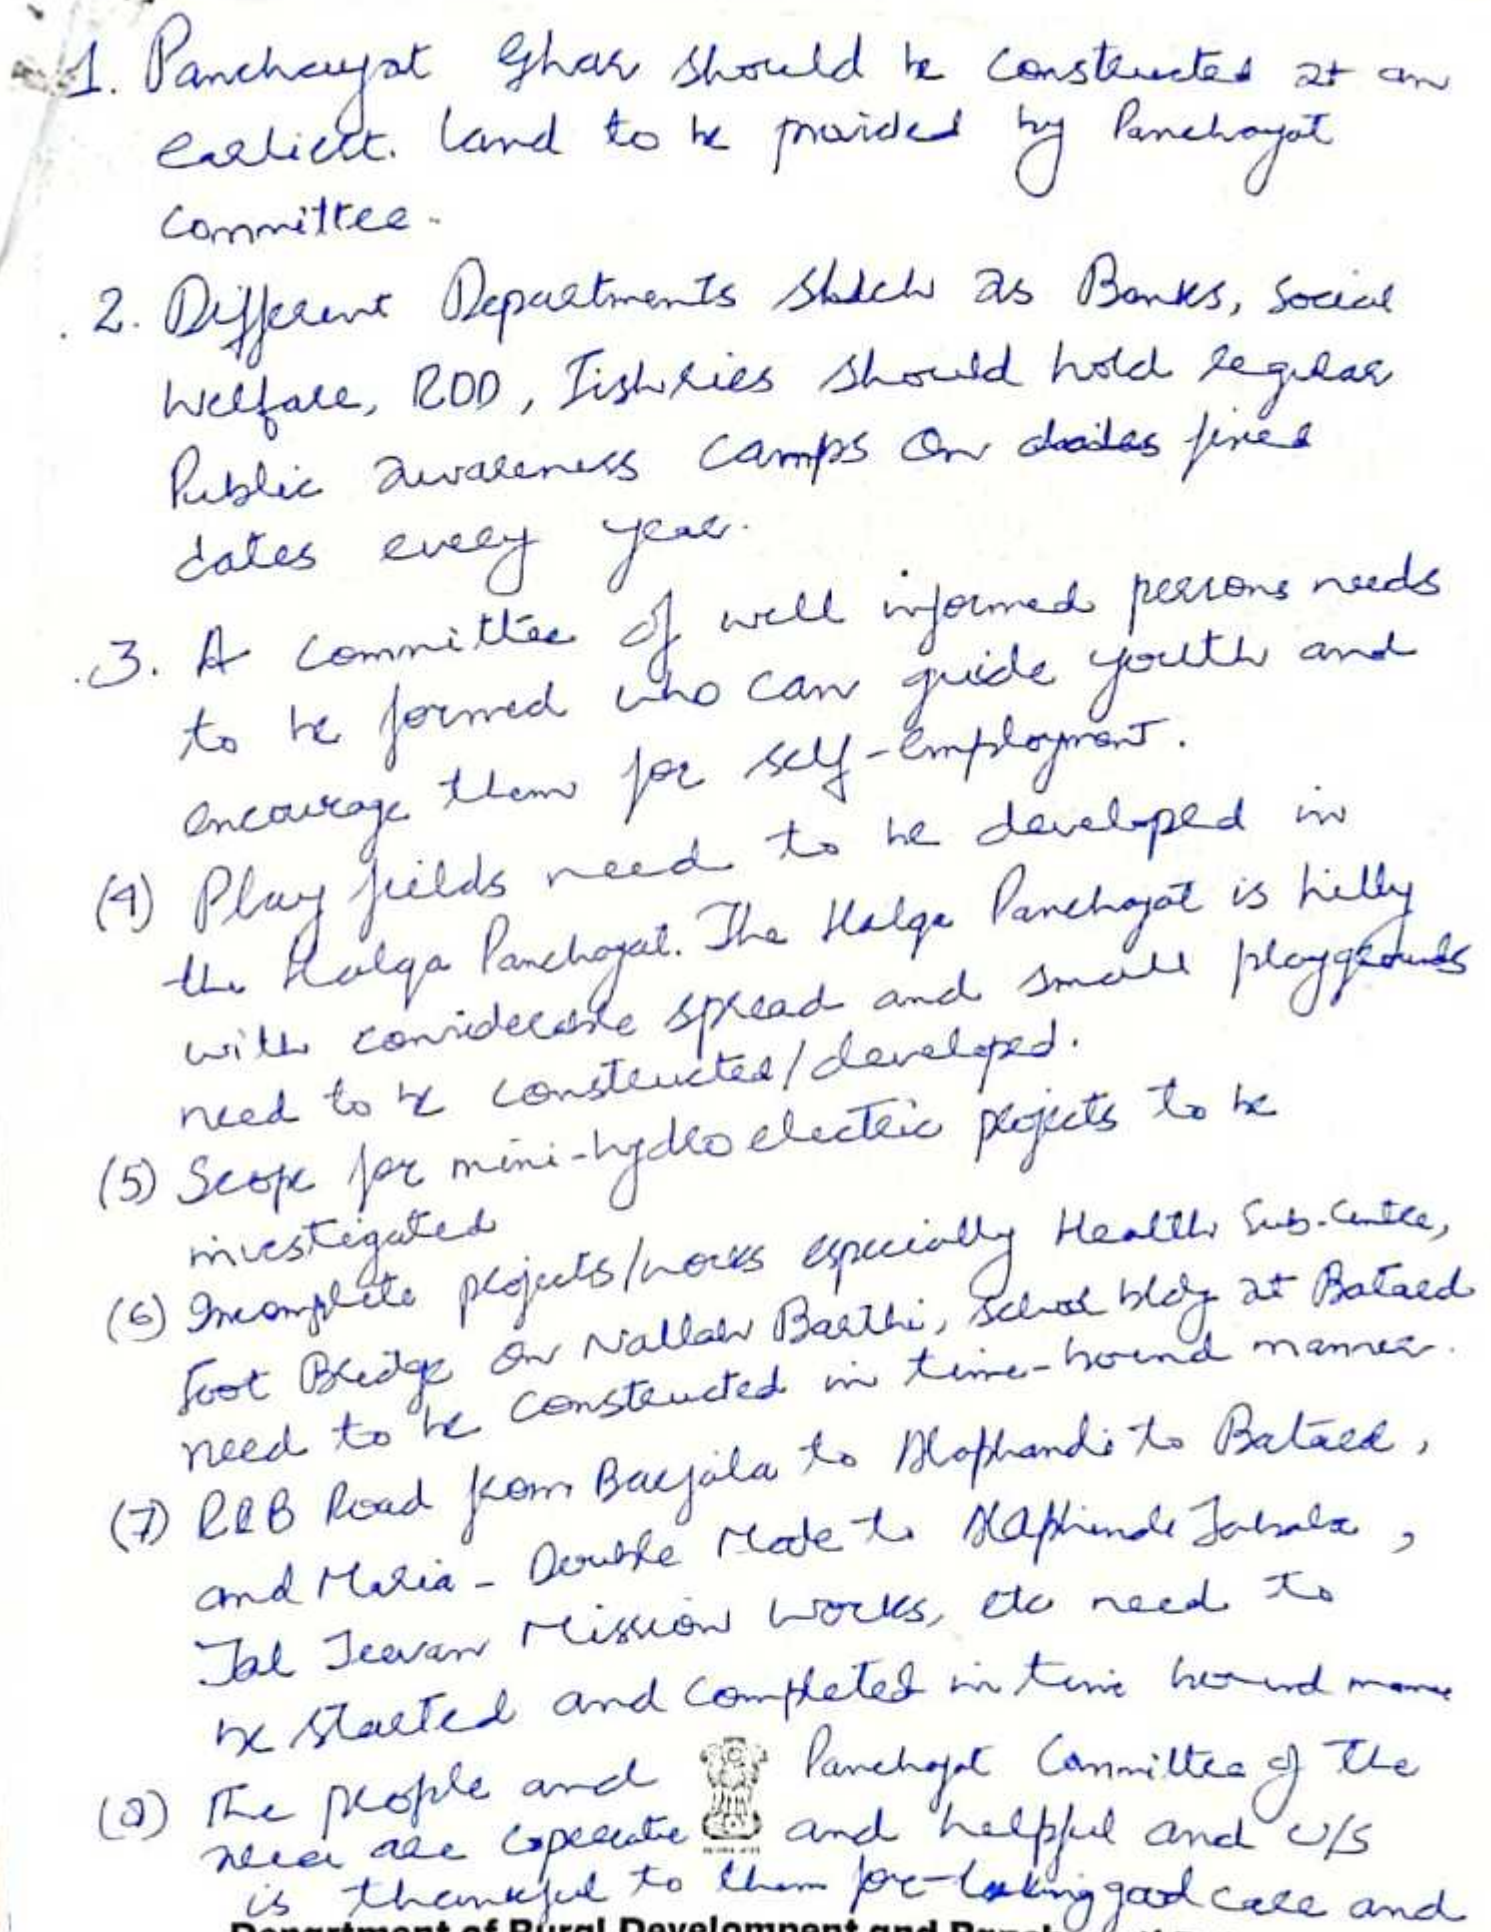 1. Panchayat Ghar should be constructed at an
earliest. Land to be provided by Panchayat
Committee.
2. Different Departments such as Banks, Social
Welfare, RDD, Fisheries should hold regular
Public awareness camps on fixed
dates every year.
3. A committee of well informed persons needs
to be formed who can guide youth and
encourage them for self-employment.
(4) Play fields need to be developed in
the Halqa Panchayat. The Halqa Panchayat is hilly
with considerable spread and small playgrounds
need to be constructed/developed.
(5) Scope for mini-hydro electric projects to be
investigated
(6) Incomplete projects/works especially Health Sub-Centre,
Foot Bridge on Nallah Barthi, School bldg at Batard
need to be constructed in time-bound manner.
(7) R&B Road from Barjala to to Batard,
and Maria - Double to
Jal Jeevan Mission works, etc need to
be started and completed in time bound manner
(8) The people and Panchayat Committee of the
area are coperative and helpful and U/S
is thankful to them for taking good care and
Department of Rural Development and